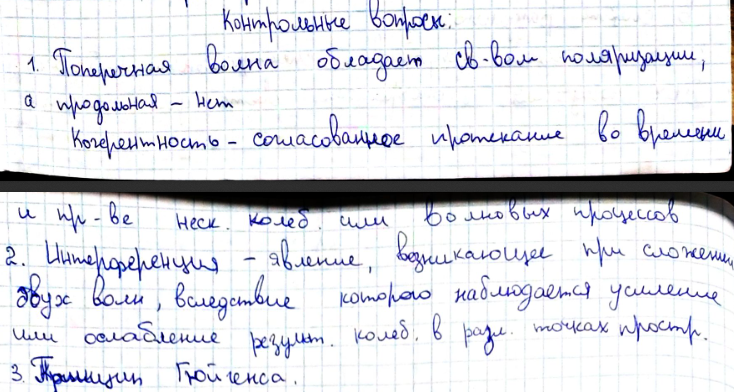 Контрольные вопросы:
1. Поперечная волна обладает св-вом поляризации,
а продольная – нет
Когерентность – согласованное протекание во времени
и пр-ве неск. колеб. или волновых процессов
2. Интерференция – явление, возникающее при сложении
двух волн, вследствие которого наблюдается усиление
или ослабление результ. колеб. в разл. точках простр.
3. Принцип Гюйгенса.